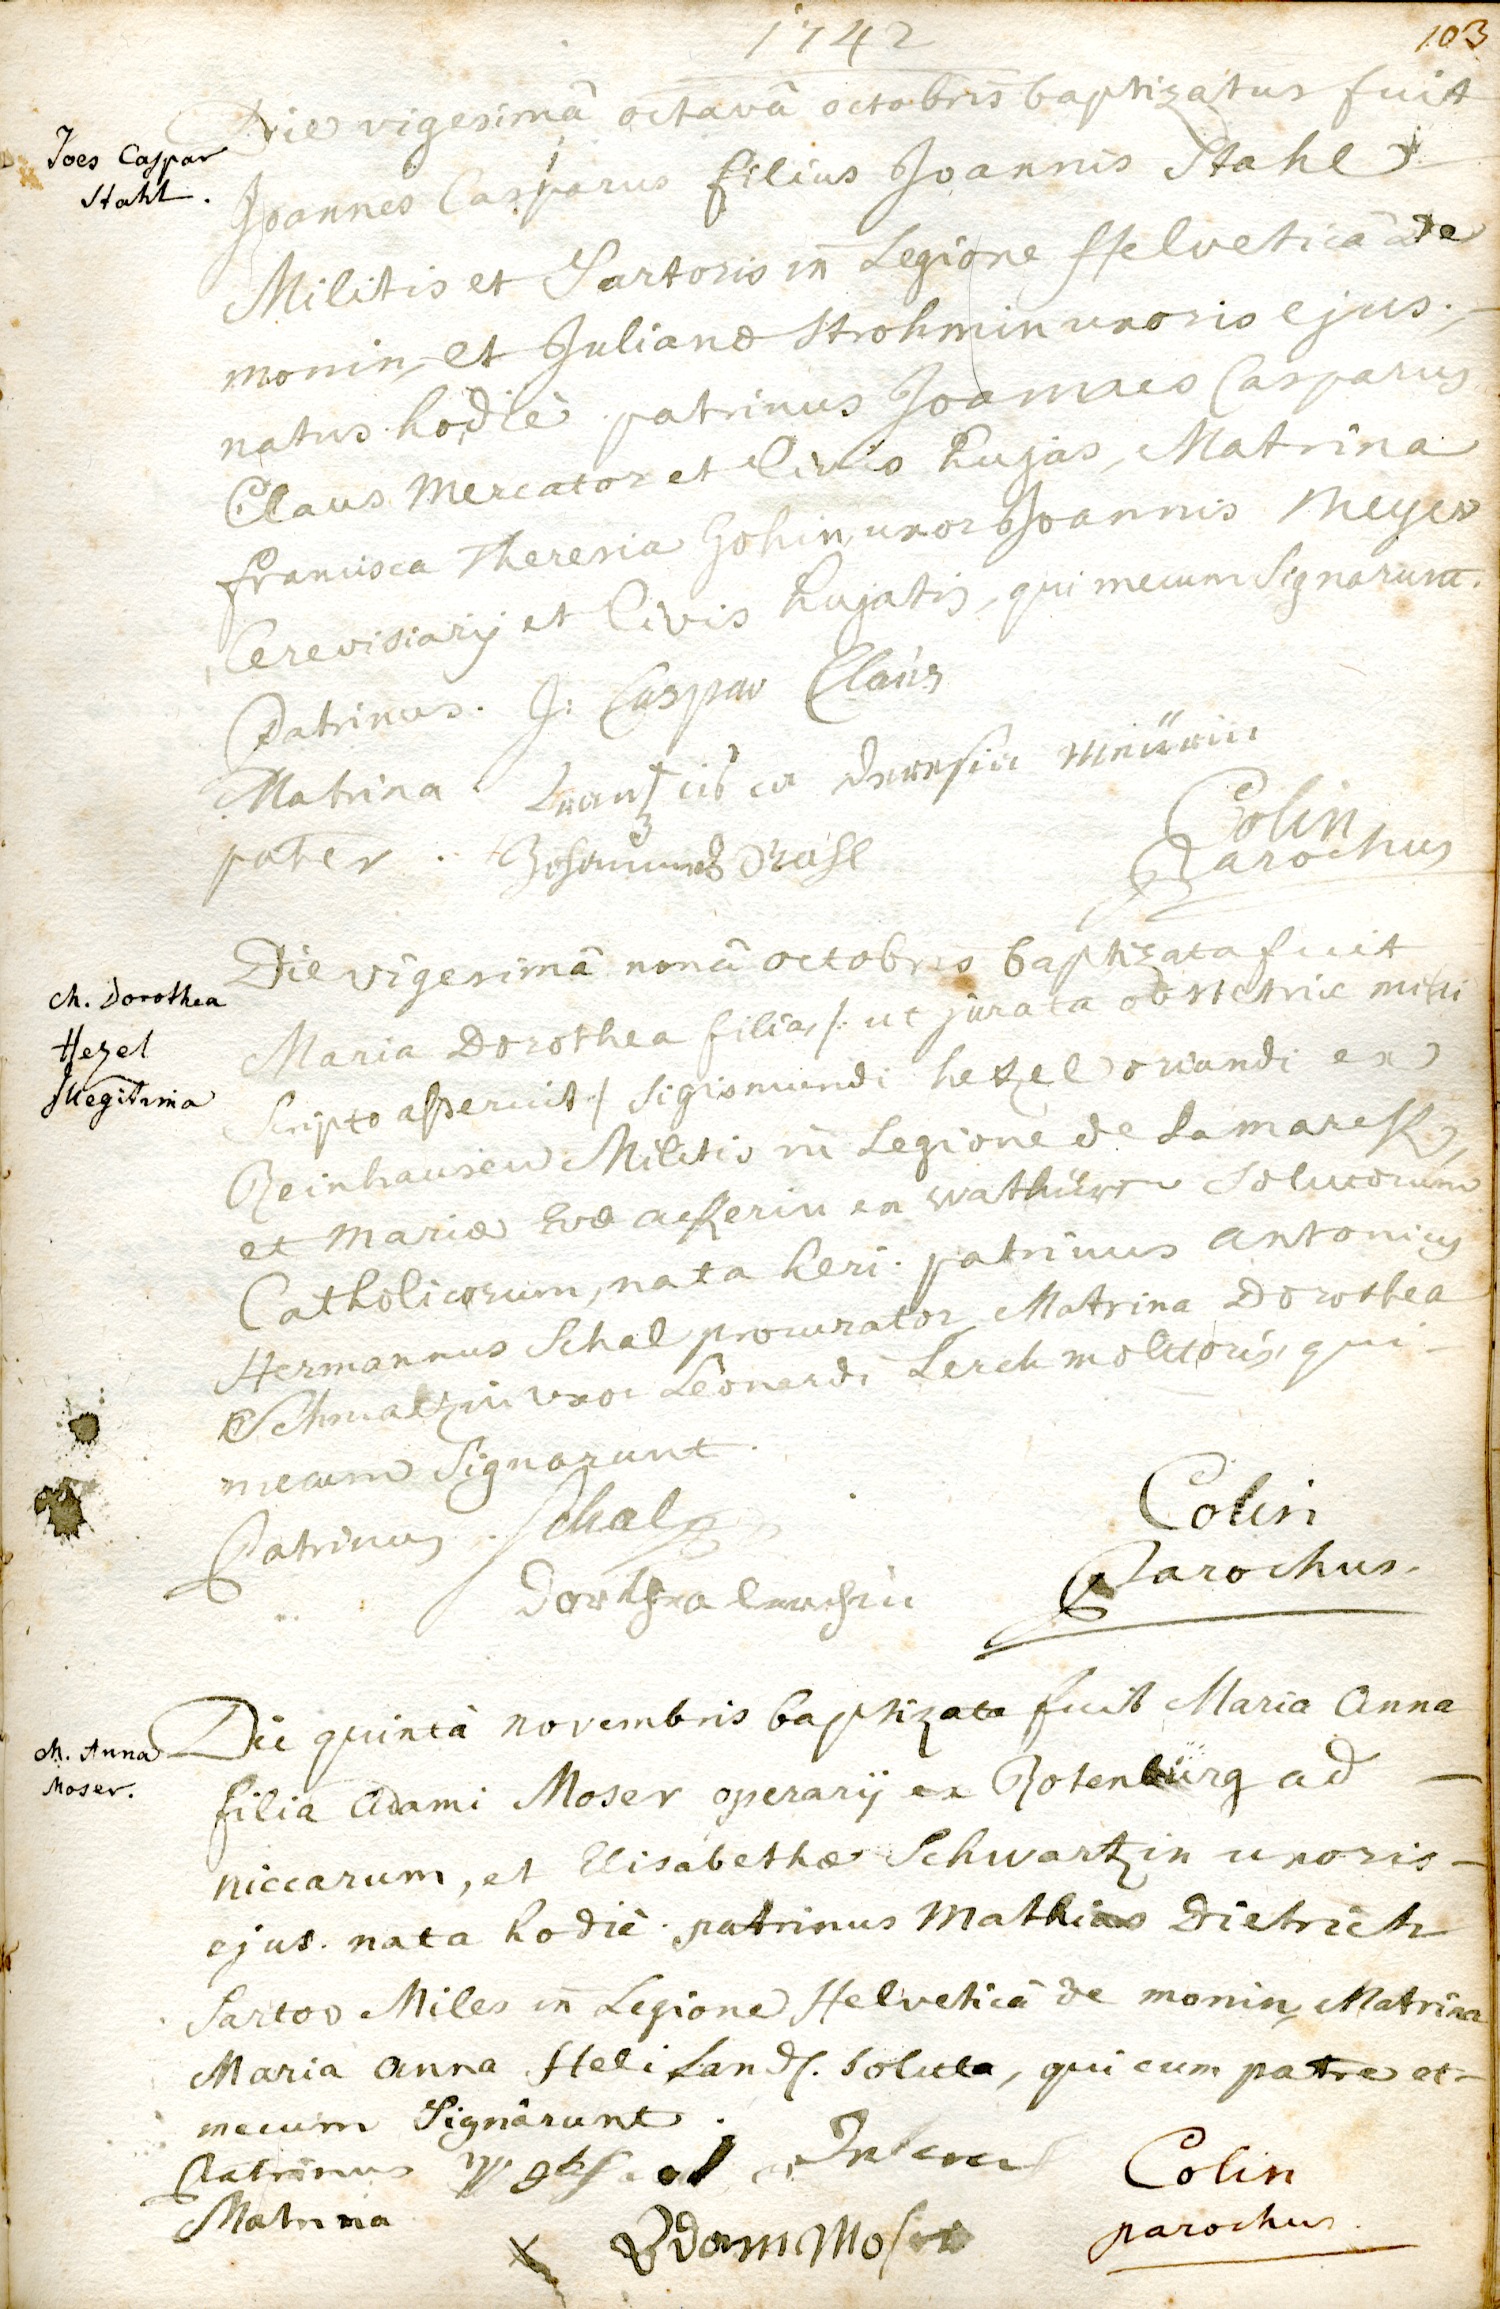 1742
103
Joes Caspar
Stahl.
Die vigesimâ octavâ octobris baptizatus fuit
Joannes Casparus filius Joannis Stahl
Militis et Sartoris in Legione Helveticâ de
monin, et Julianæ Strohmin uxoris ejus.
natus hodiè patrinus Joannes Casparus
Claus Mercator et Civis hujas, Matrina
francisca Theresia Gohin uxor Joannis Meyer
Cerevisiarij et Civis hujatis, qui mecum Signarunt.
Patrinus. J: Caspar Claus
Matrina
pater. Johannes Stahl
Colin
Parochus
M. Dorothea
Hezel
Illegitima
Die vigesimâ nonâ octobris baptizata fuit
Maria Dorothea filia, /: ut jurata obstetrix mihi
Scripto asseruit :/ Sigismundi hetzel oriundi ex
Reinhausen Militis in Legione de Lamarck,
et Mariæ Evæ ackerin ex Solutorum
Catholicorum, nata heri. patrinus antonius
Hermannus Schal procurator Matrina Dorothea
Schmaltzin uxor Leonardi Lerch molitoris, qui
mecum Signarunt.
Patrinus. Schal
Colin
Parochus.
M. Anna
Moser.
Die quintâ novembris baptizata fuit Maria Anna
filia Adami Moser operarij ex Rotenbürg ad
niccarum, et Elisabethæ Schwartzin uxoris
ejus. nata hodiè. patrinus Mathias Dietrich
Sartor Miles in Legione Helveticâ de monin, Matrina
Maria Anna soluta, qui cum patre et
mecum Signârunt.
Patrinus
Matrina
X Adam Moser
Colin
parochus.